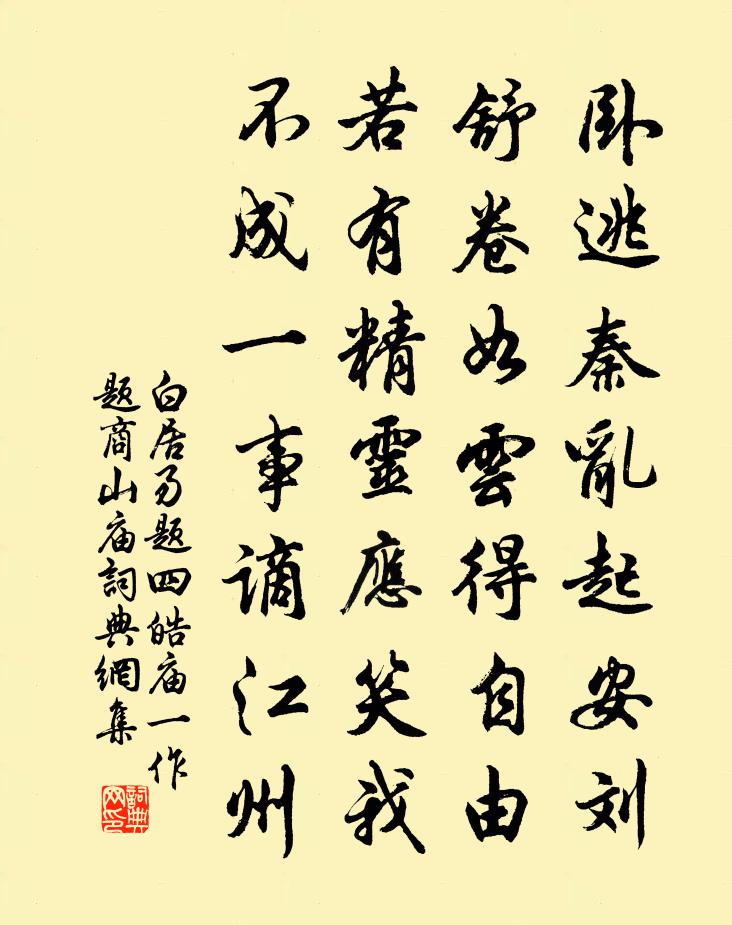 卧逃秦亂起安刘
舒卷如雲得自由
若有精靈應笑我
不成一事谪江州
白居易题四皓庙一作
题商山庙詞典網集
詞典
网印